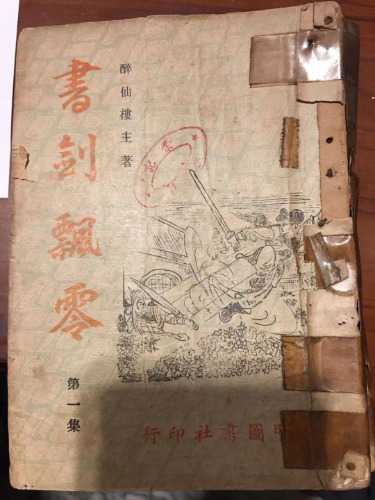 書劍飄零
醉仙樓主著
第一集
行印社書圖